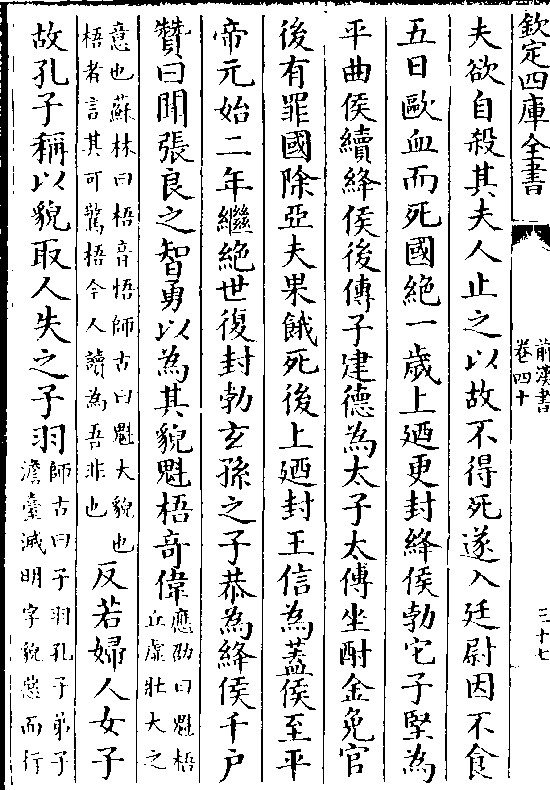 欽定四庫全書
前漢書
卷四十
三十七
夫欲自殺其夫人止之以故不得死遂入廷尉因不食
五日歐血而死國絕一歲上廼更封絳侯勃它子堅為
平曲侯續絳侯後傳子建德為太子太傅坐酎金免官
後有罪國除亞夫果餓死後上廼封王信為蓋侯至平
帝元始二年繼絕世復封勃玄孫之子恭為絳侯千戶
贊曰聞張良之智勇以為其貌魁梧奇偉應劭曰魁梧
丘虛壯大之
意也蘇林曰梧音悟師古曰魁大貌也
梧者言其可驚梧今人讀為吾非也
反若婦人女子
故孔子稱以貌取人失之子羽師古曰子羽孔子弟子
澹臺滅明字貌惡而行